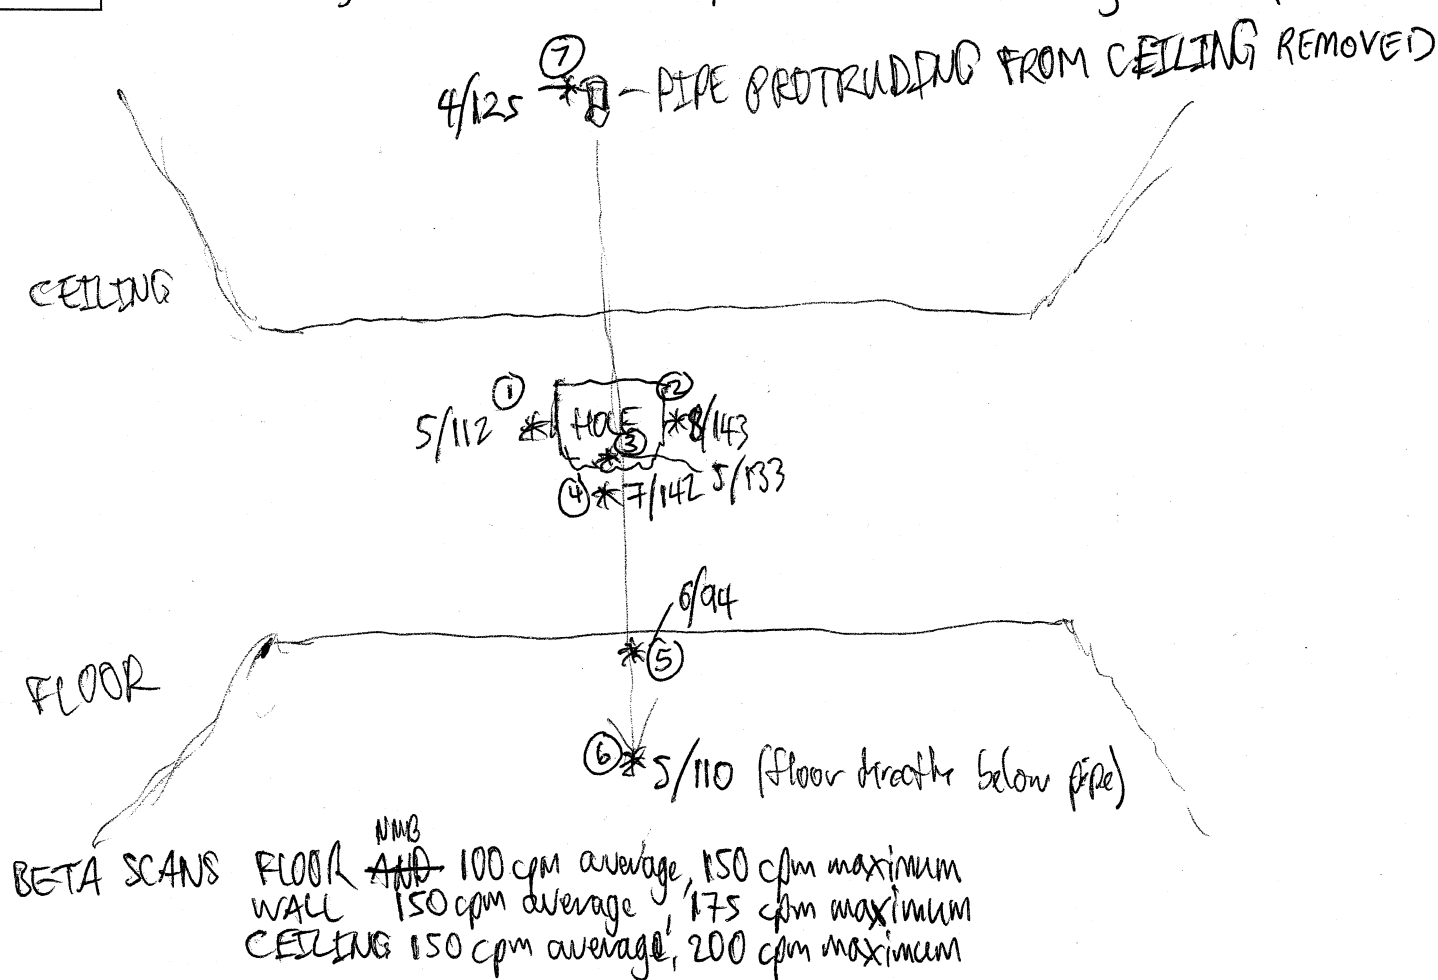 7
4/125 * - PIPE PROTRUDING FROM CEILING REMOVED
CEILING
1 2
5/112 * HOLE * 8/143
3
* 5/133
4 * 7/142
6/94
* 5
FLOOR
6 * 5/110 (floor directly below pipe)
NMB
BETA SCANS FLOOR AND 100 cpm average, 150 cpm maximum
WALL 150 cpm average, 175 cpm maximum
CEILING 150 cpm average, 200 cpm maximum